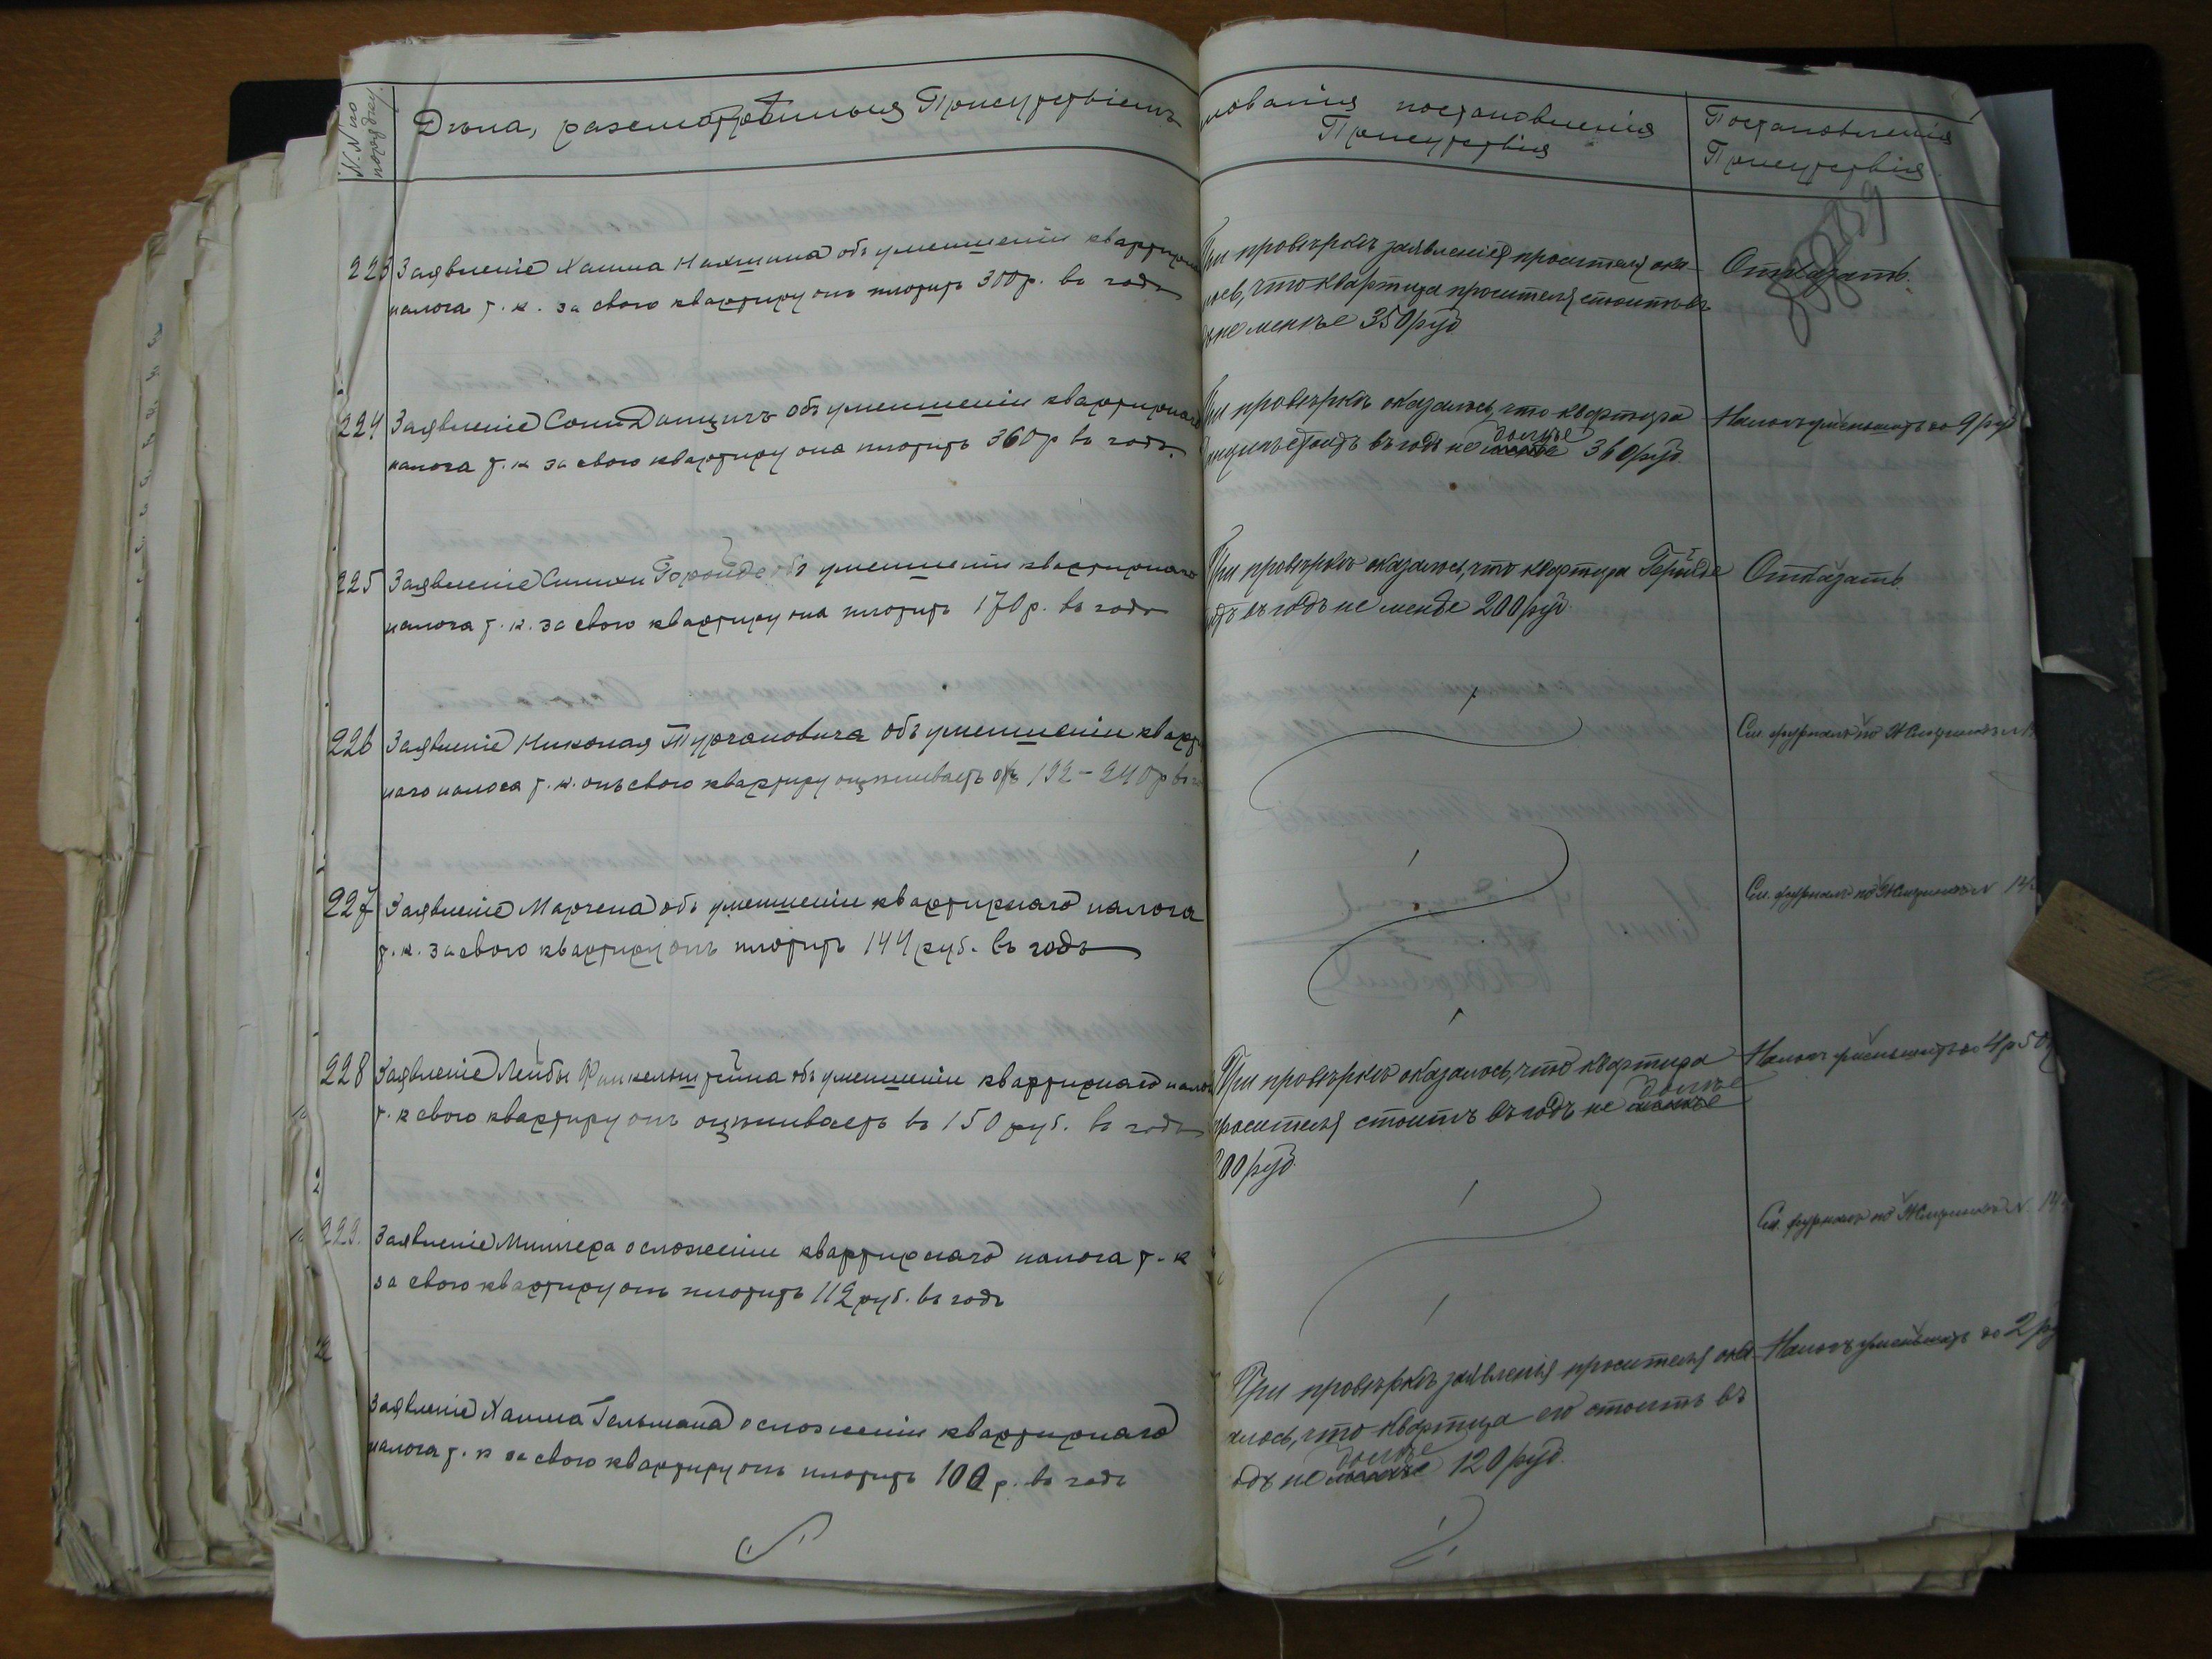 N.N по порядку.
Дѣла, разсмотрѣнныя Присутствіемъ
нованія постановленія
Присутствія
Постановленія
Присутствія
223 Заявленіе Хаима Нахшина объ уменшеніи квартирна
налога т. к. за свою квартиру онъ плотитъ 300 р. въ годъ
При провѣркѣ заявленія просителя ока-
лось, что квартира просителя стоитъ въ
не менѣе 350 руб
Отказать.
224 Заявленіе Сони Данцигъ объ уменшеніи квартирнаго
налога т. к за свою квартиру она плотитъ 360 р въ годъ.
При провѣркѣ оказалось, что квартира
стоитъ въ годъ не болѣе менѣе 360 руб.
Налогъ уменьшить до 9 руб
225 Заявленіе Симхи объ уменшеніи квартирнаго
налога т. к. за свою квартиру она плотитъ 170 р. въ годъ
При провѣркѣ оказалось, что квартира
въ годъ не менѣе 200 руб.
Отказать.
226 Заявленіе Николая Турчановича объ уменшеніи кварт
наго налога т. к. онъ свою квартиру оцѣниваетъ отъ 192 - 240 р въ
См. журналъ по
227 Заявленіе Марчена объ уменшеніи квартирнаго налога
т. к. за свою квартиру онъ плотитъ 144 руб. въ годъ
См. журналъ по
228 Заявленіе Лейбы Финкельштейна объ уменшеніи квартирнаго нало
т. к свою квартиру онъ оцѣниваетъ въ 150 руб. въ годъ
При провѣркѣ оказалось, что квартира
просителя стоитъ въ годъ не болѣе менѣе
200 руб.
Налогъ уменьшить до 4 р 50
229. Заявленіе Миллера о сложеніи квартирнаго налога т. к
за свою квартиру онъ плотитъ 112 руб. въ годъ
См. журналъ по
Заявленіе Хаима Гельмана о сложеніи квартирнаго
налога т. к за свою квартиру онъ плотитъ 100 р. въ годъ
При провѣркѣ заявленія просителя ока-
алось, что квартира его стоитъ въ
одъ не болѣе менѣе 120 руб.
Налогъ уменьшить до 2 ру